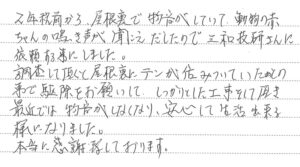 2年程前から、屋根裏で物音がしていて、動物の赤
ちゃんの鳴き声が聞こえだしたので三和技研さんに
依頼する事にしました。
調査して頂くと屋根裏にテンが住みついていたとの
事で駆除をお願いして、しっかりとした工事をして頂き
最近では物音がしなくなり、安心して生活出来る
様になりました。
本当に感謝致しております。